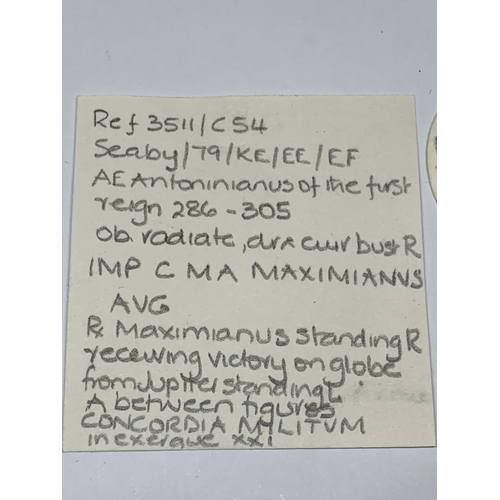 Ref 3511/C54
Seaby/79/KE/EE/EF
AE Antoninianus of the first
reign 286-305
ob. radiate, dr & cuir bust R
IMP C M A MAXIMIANVS
AVG
Rx Maximianus standing R
receiving victory on globe
from Jupiter standing L
A between figures
CONCORDIA MILITVM
in exergue XXI